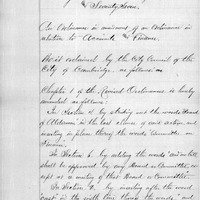 & Seventy Seven.
An Ordinance in amendment of an Ordinance in
relation to Accounts & Finance.
Be it ordained by the City Council of the
City of Cambridge, as follows:
Chapter 1 of the Revised Ordinances is hereby
amended as follows:
In Section 4, by striking out the words "Board
of Aldermen" in the last clause of said section and
inserting in place thereof the words "Committee on
Finance.
In Section 6, by inserting the words "and no bill
shall be approved by any Board or Committee, ex-
cept at a meeting of that Board or Committee."
In Section 2, by inserting after the word